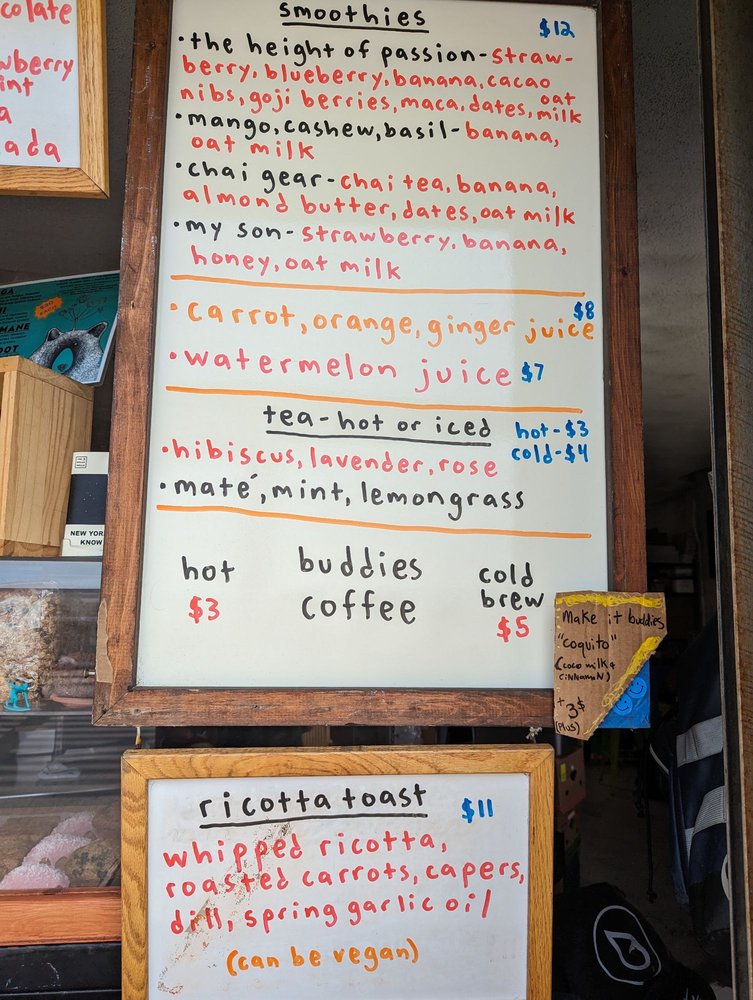 colate
wberry
int
a
ada
smoothies $12
•the height of passion-straw-
berry, blueberry, banana, cacao
nibs, goji berries, maca, dates, oat
milk
•mango, cashew, basil-banana,
oat milk
•chai gear-chai tea, banana,
almond butter, dates, oat milk
•my son-strawberry, banana,
honey, oat milk
•carrot, orange, ginger juice $8
•watermelon juice $7
tea-hot or iced hot-$3
cold-$4
•hibiscus, lavender, rose
•maté, mint, lemongrass
hot buddies cold
coffee brew
$3 $5
Make it buddies
"coquito"
(coco milk +
cinnamon)
+3$
(plus)
NEW YOR
KNOW
ricotta toast $11
whipped ricotta,
roasted carrots, capers,
dill, spring garlic oil
(can be vegan)